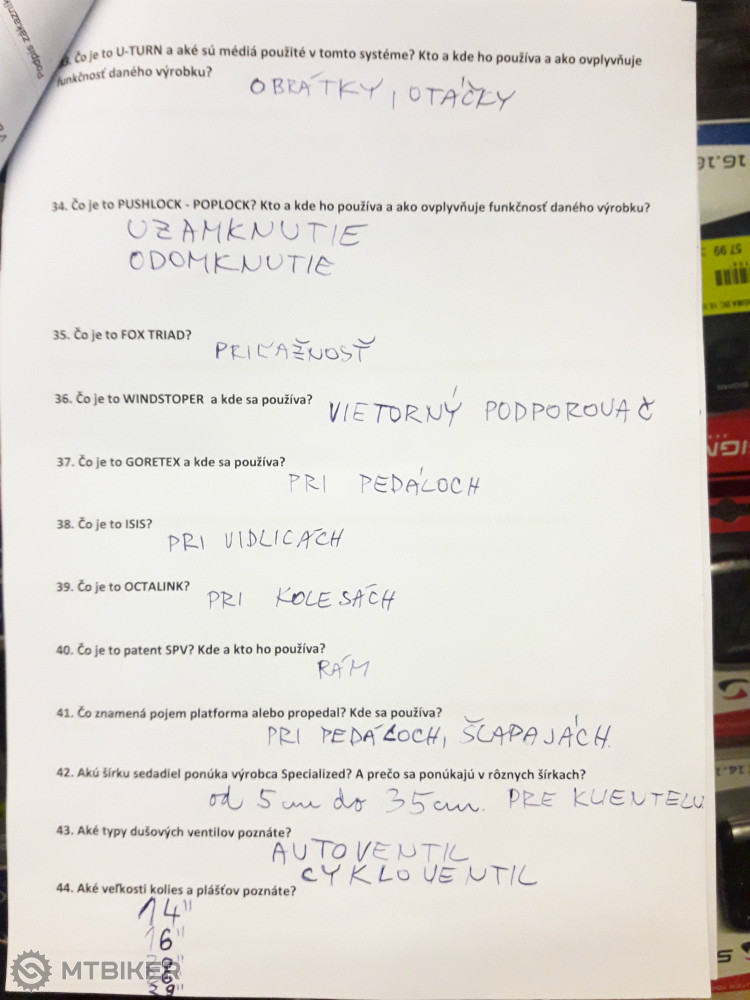 Podpis zákazník
33. Čo je to U-TURN a aké sú médiá použité v tomto systéme? Kto a kde ho používa a ako ovplyvňuje
funkčnosť daného výrobku?
OBRÁTKY, OTÁČKY
34. Čo je to PUSHLOCK - POPLOCK? Kto a kde ho používa a ako ovplyvňuje funkčnosť daného výrobku?
UZAMKNUTIE
ODOMKNUTIE
35. Čo je to FOX TRIAD?
PRIĽAŽNOSŤ
36. Čo je to WINDSTOPER a kde sa používa?
VIETORNÝ PODPOROVAČ
37. Čo je to GORETEX a kde sa používa?
PRI PEDÁLOCH
38. Čo je to ISIS?
PRI VIDLICÁCH
39. Čo je to OCTALINK?
PRI KOLESÁCH
40. Čo je to patent SPV? Kde a kto ho používa?
RÁM
41. Čo znamená pojem platforma alebo propedal? Kde sa používa?
PRI PEDÁLOCH, ŠLAPAJÁCH.
42. Akú šírku sedadiel ponúka výrobca Specialized? A prečo sa ponúkajú v rôznych šírkach?
od 5cm do 35cm. PRE KLIENTELU
43. Aké typy dušových ventilov poznáte?
AUTOVENTIL
CYKLOVENTIL
44. Aké veľkosti kolies a plášťov poznáte?
14"
16"
MTBIKER
57.99